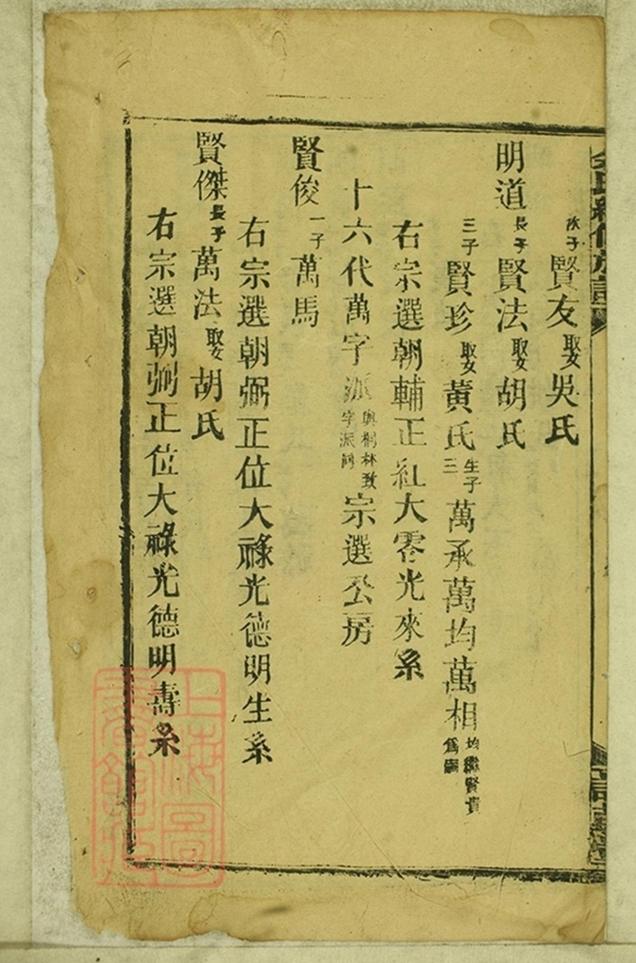 次子賢友娶吳氏
明道長子賢法娶胡氏
三子賢珍娶黃氏生子三萬承萬均萬相均繼賢貴為嗣
右宗選朝輔正紅大零光來系
十六代萬字派與桐林致字派同宗選公房
賢俊一子萬馬
右宗選朝弼正位大祿光德明生系
賢傑長子萬法娶胡氏
右宗選朝弼正位大祿光德明壽系